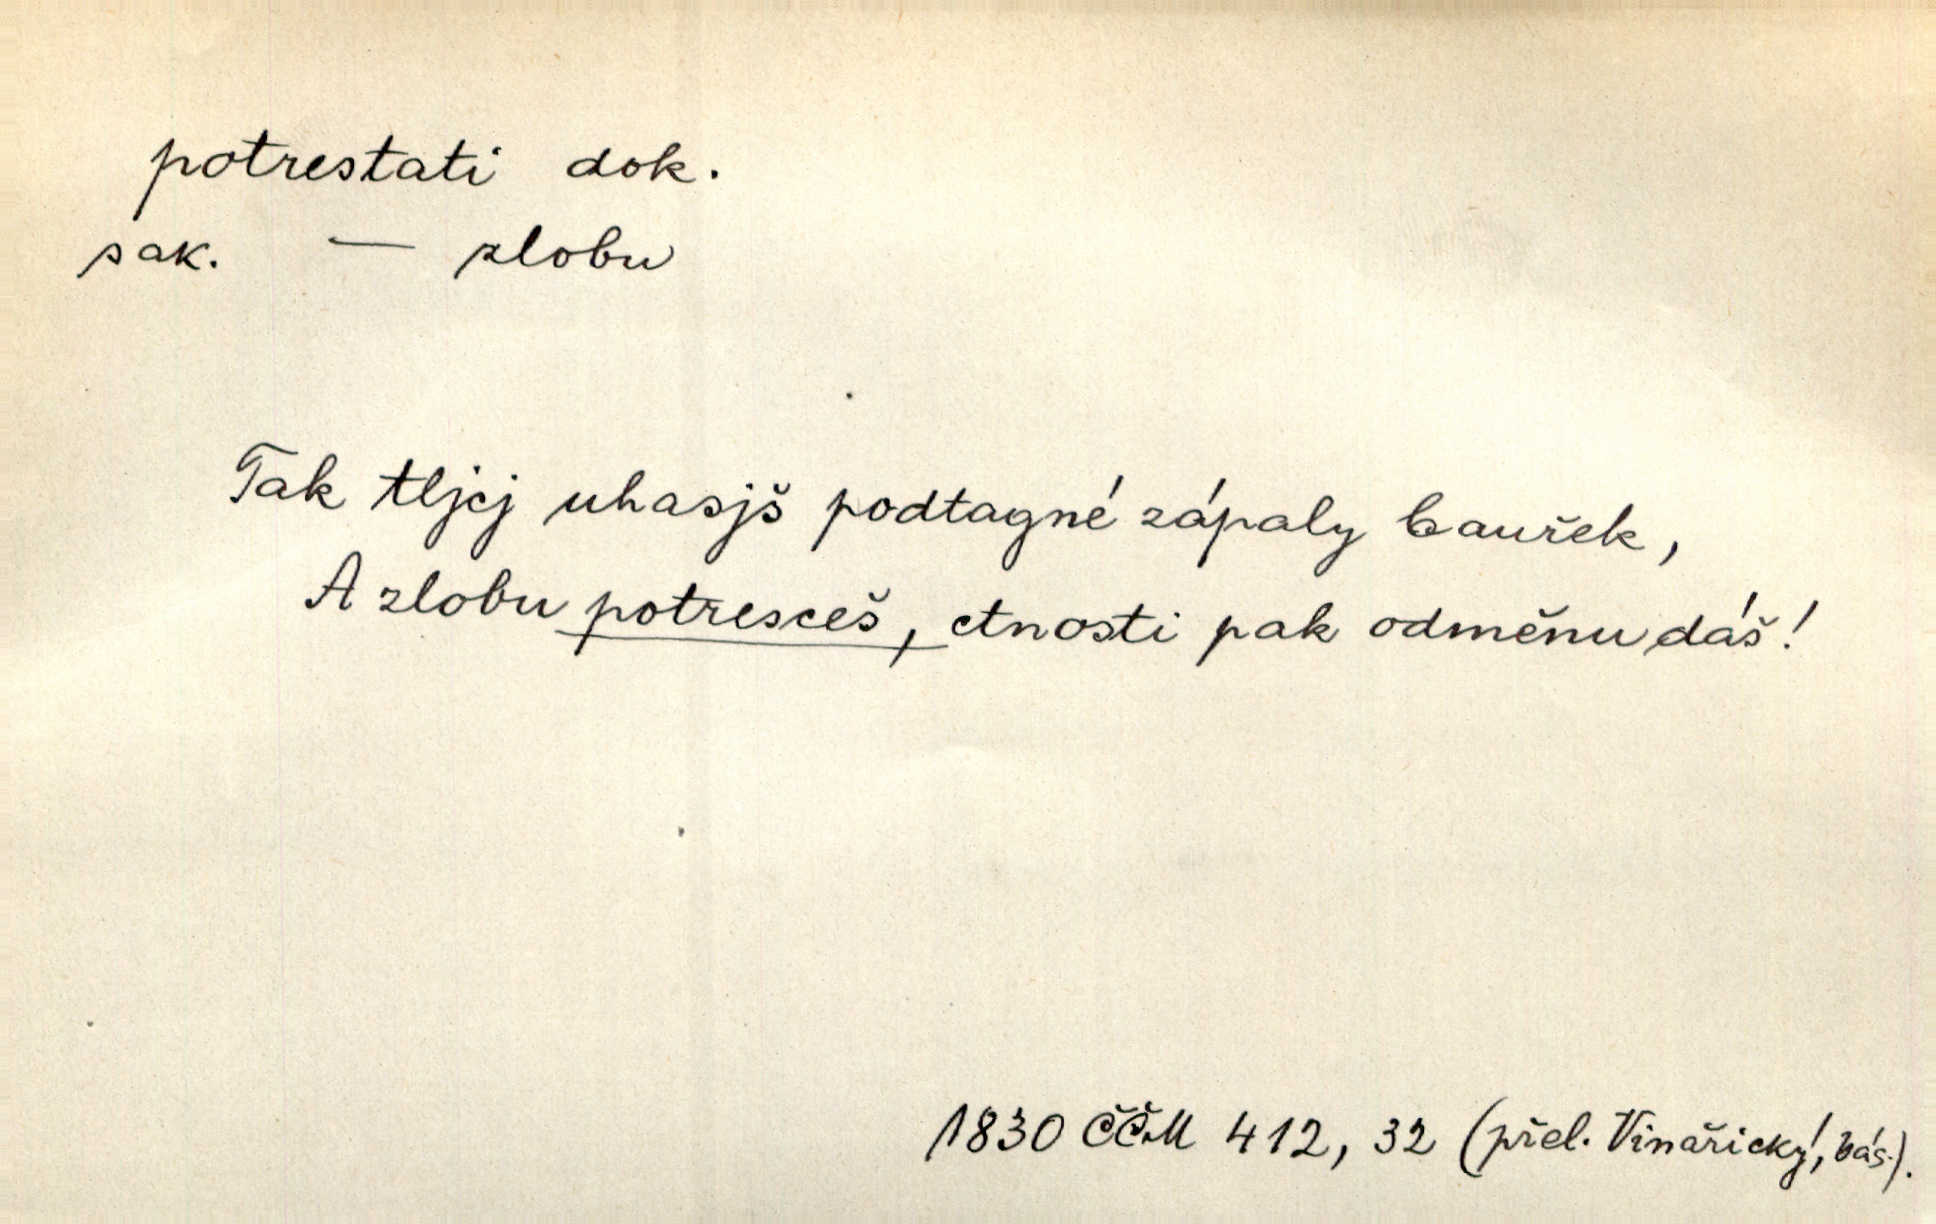 potrestati dok.
sak. — zlobu
Tak tljcj uhasjš podtagné zápaly bauřek,
A zlobu potresceš, ctnosti pak odměnu dáš!
1830 ČČM 412, 32 (přel. Vinařický, bás.).